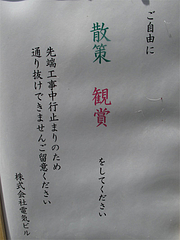 ご自由に
散策 観賞
をしてください
先端工事中行止まりのため
通り抜けできませんご留意ください
株式会社電気ビル